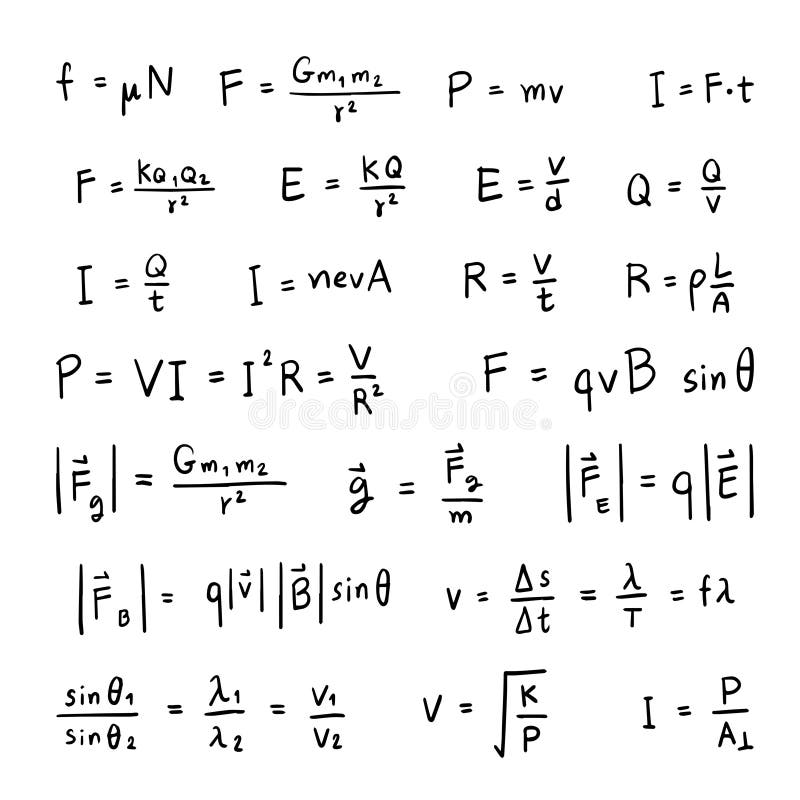 f = μN F = Gm₁m₂/r² P = mv I = F·t
F = KQ₁Q₂/r² E = KQ/r² E = V/d Q = Q/V
I = Q/t I = nevA R = V/t R = ρL/A
P = VI = I²R = V/R² F = qvB sinθ
|F⃗g| = Gm₁m₂/r² g⃗ = F⃗g/m |F⃗E| = q|E⃗|
|F⃗B| = q|v⃗||B⃗|sinθ v = Δs/Δt = λ/T = fλ
sinθ₁/sinθ₂ = λ₁/λ₂ = V₁/V₂ V = √(K/P) I = P/A⊥
dreamstime